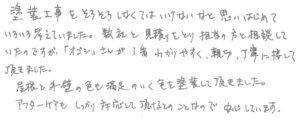 塗装工事をそろそろしなくてはいけないなと思いはじめ
いろいろ考えていました。数社と見積をとり担当の方と相談して
いたのですが「オジマ」さんが1番わかりやすく、親切、丁寧に接して
頂きました。
屋根と外壁の色も満足のいく色を塗装して頂きました。
アフターケアもしっかり対応して頂けるとのことなので安心しています。